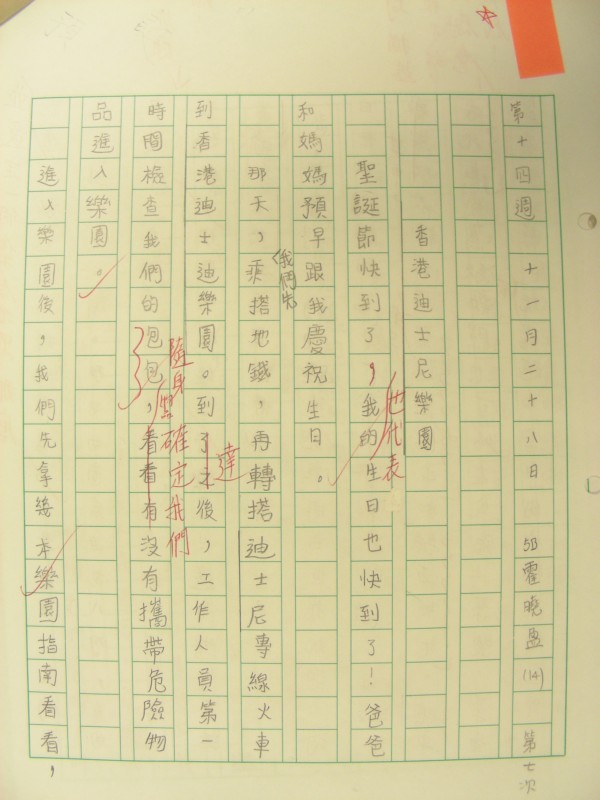 第十四週 十一月二十八日 5B霍曉盈(14) 第七次
香港迪士尼樂園
也代表
聖誕節快到了，我的生日也快到了！爸爸
和媽媽預早跟我慶祝生日。
我們先
那天，乘搭地鐵，再轉搭迪士尼專線火車
達
到香港迪士迪樂園。到了之後，工作人員第一
隨身
確定我們
時間檢查我們的包包，看看有沒有攜帶危險物
品進入樂園。
進入樂園後，我們先拿幾本樂園指南看看，